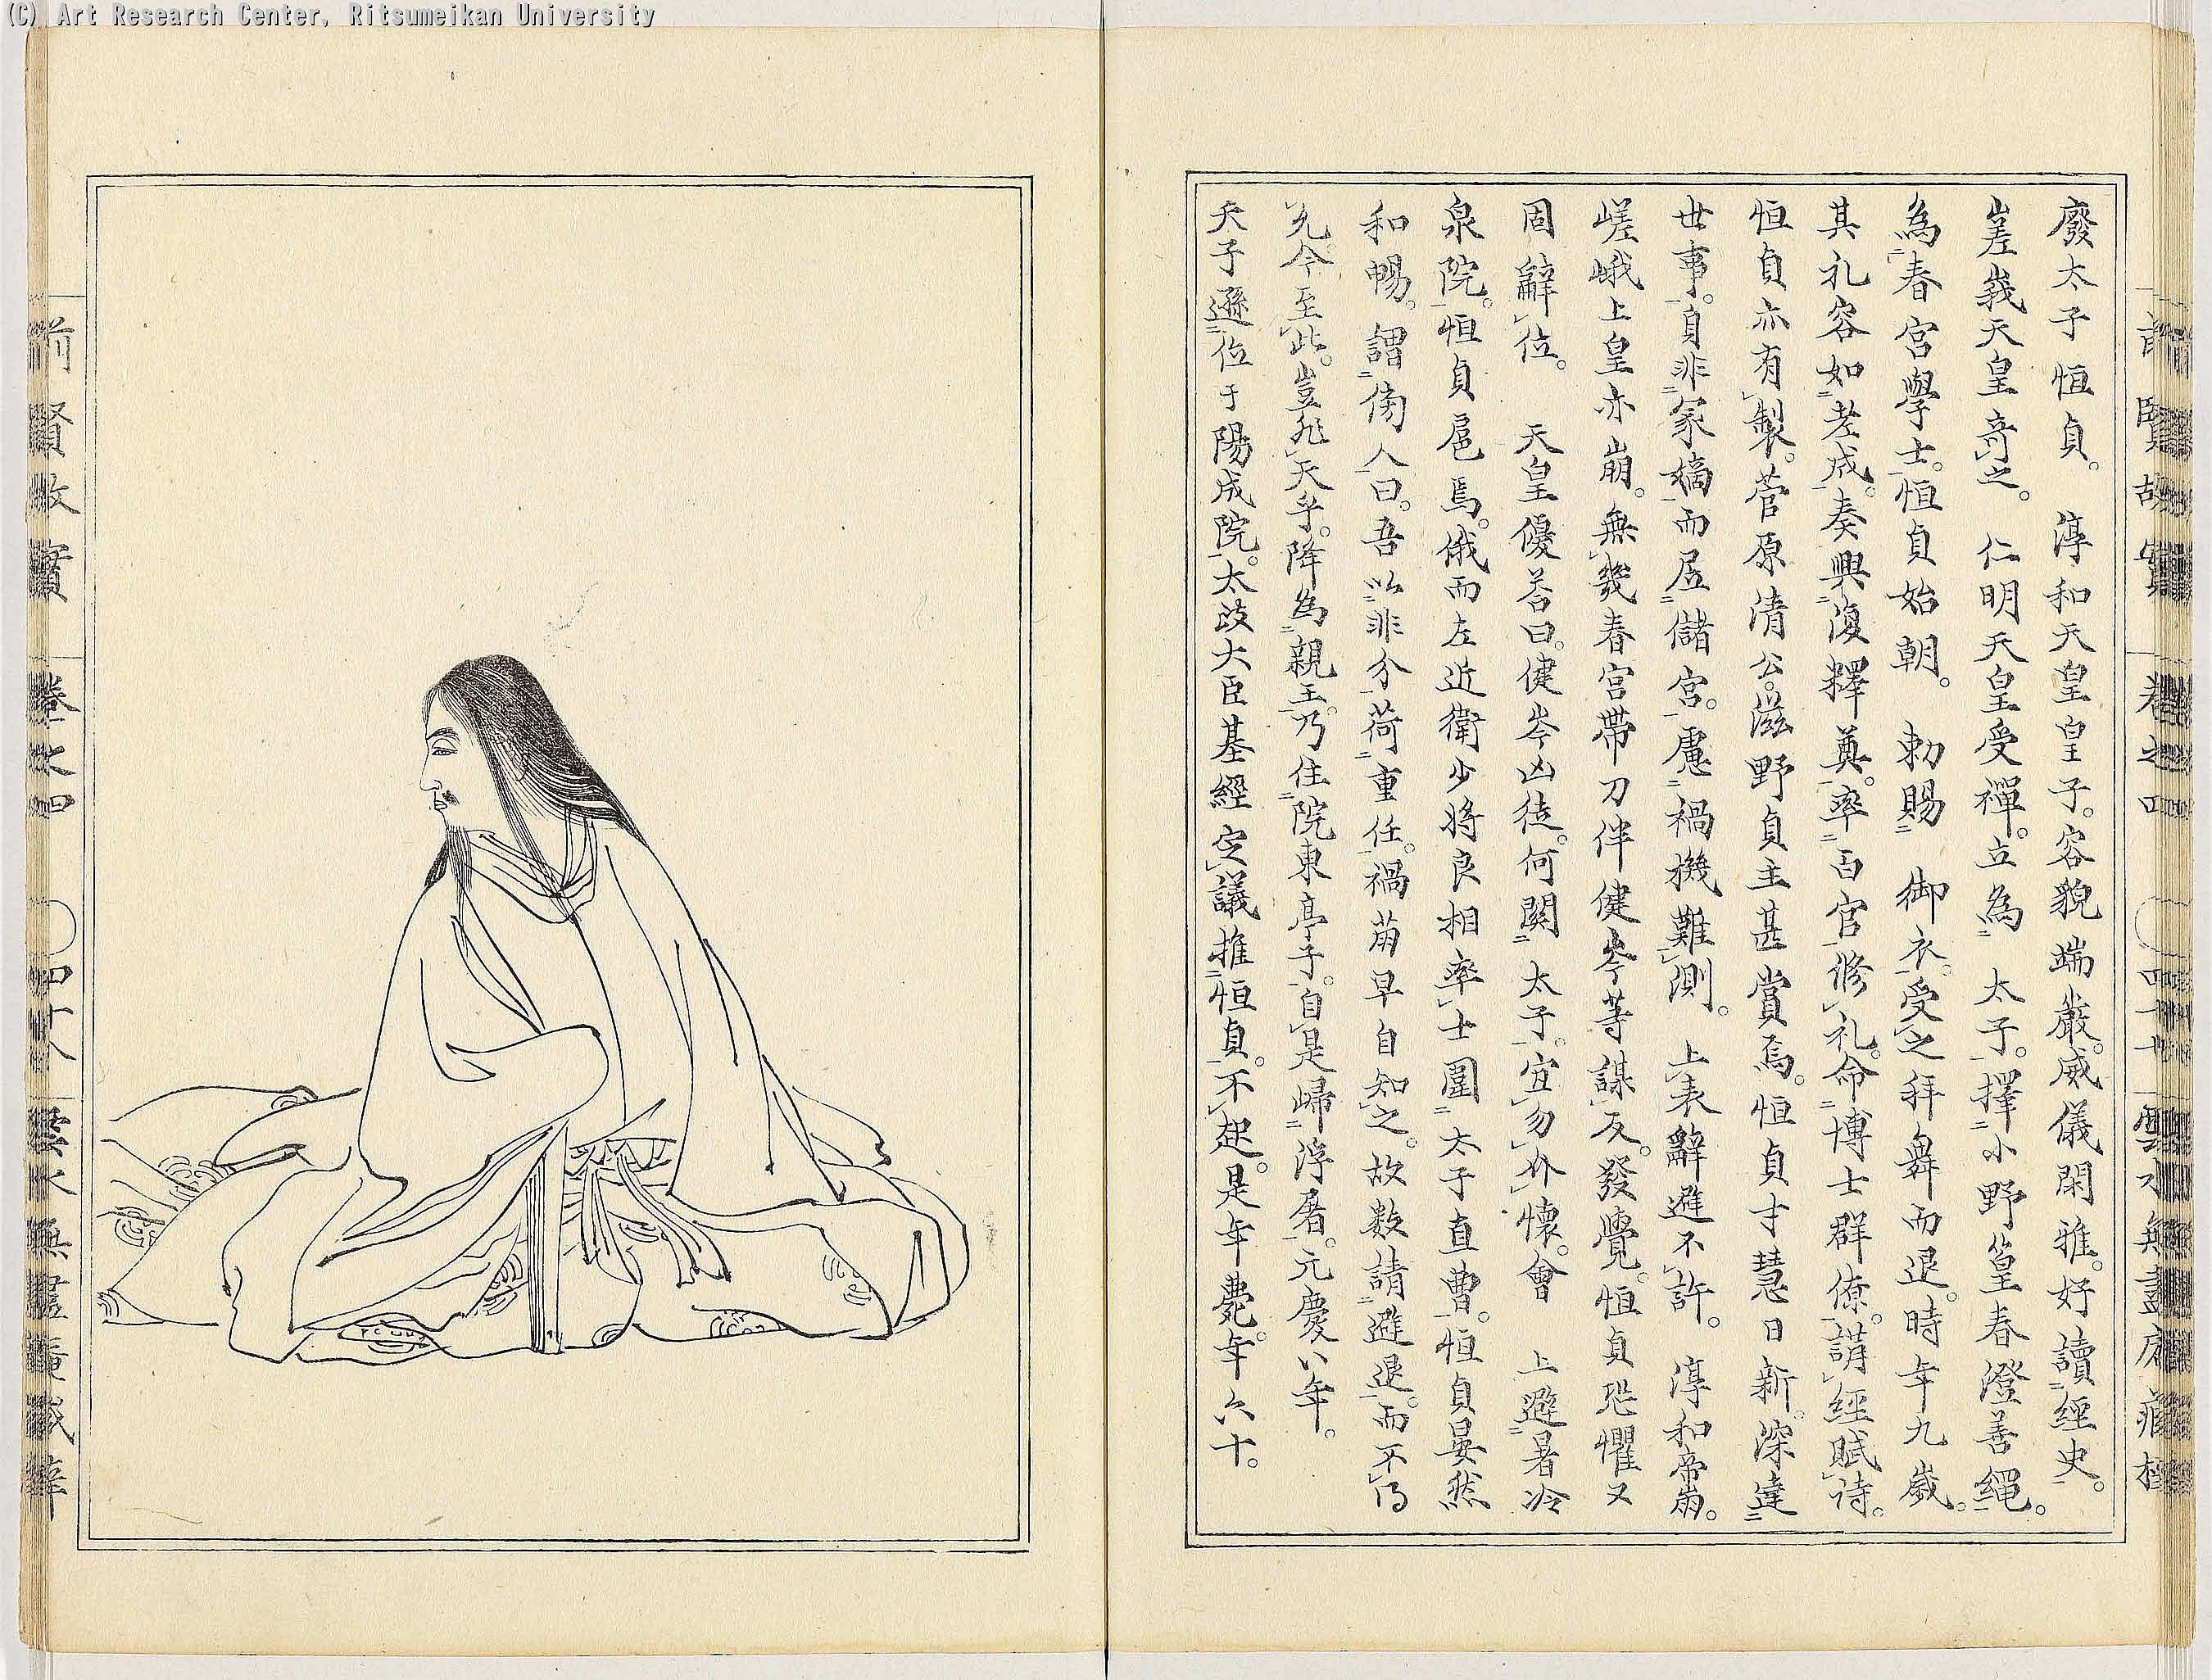 (C) Art Research Center, Ritsumeikan University
廢太子恒貞。 淳和天皇皇子。容貌端嚴。威儀閑雅。好讀經史。
嵯峩天皇奇之。 仁明天皇受禪。立為 太子。擇小野篁春澄善繩。
為春宮學士。恒貞始朝。 勅賜 御衣。受之拜舞而退。時年九歲。
其礼容如老成。奏興復釋奠。率百官修礼。命博士群僚。講經賦詩。
恒貞亦有製。菅原清公。滋野貞主甚賞焉。恒貞才慧日新。深達
世事。自非冢嫡而居儲宮。慮禍機難測。 上表辭避不許。 淳和帝崩。
嵯峨上皇亦崩。無幾春宮帶刀伴健岑等謀反。發覺。恒貞恐懼又
固辭位。 天皇優荅曰。健岑凶徒。何関 太子。宜勿介懷。會 上避暑冷
泉院。恒貞扈焉。俄而左近衛少將良相率士圍 太子直曹。恒貞晏然
和暢。謂傍人曰。吾以非分荷重任。禍萠早自知之。故数請避退。而不得
允。今至此。豈非天乎。降為親王。乃住院東亭子。自是歸浮屠。元慶八年。
天子遜位于陽成院。太政大臣基經定議推恒貞。不起。是年薨。年六十。
前賢故實 卷之四 四十八 雲水無盡庵藏梓